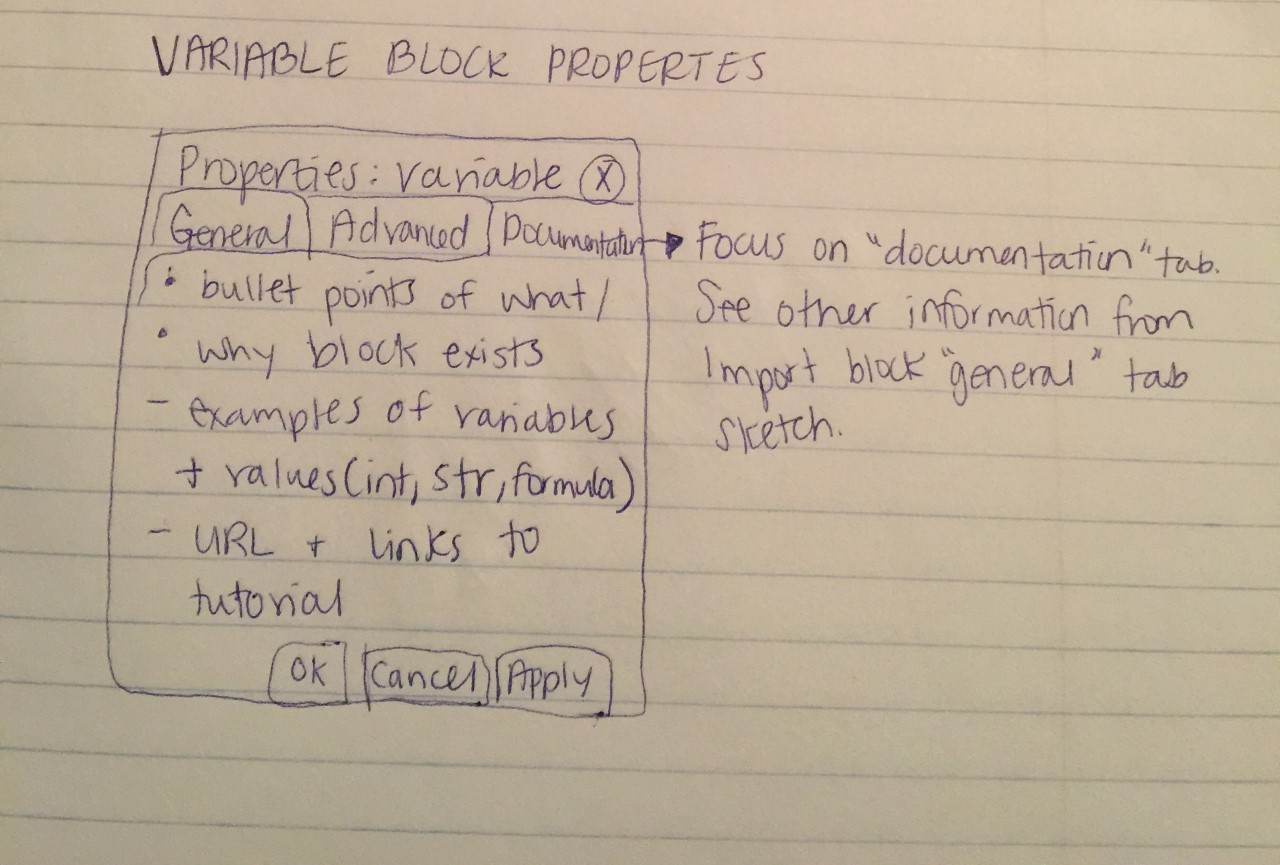 VARIABLE BLOCK PROPERTES
Properties: variable X
General Advanced Documentation
• bullet points of what/
• why block exists
- examples of variables
+ values (int, str, formula)
- URL + links to
tutorial
OK Cancel Apply
Focus on "documentation" tab.
See other information from
Import block "general" tab
sketch.